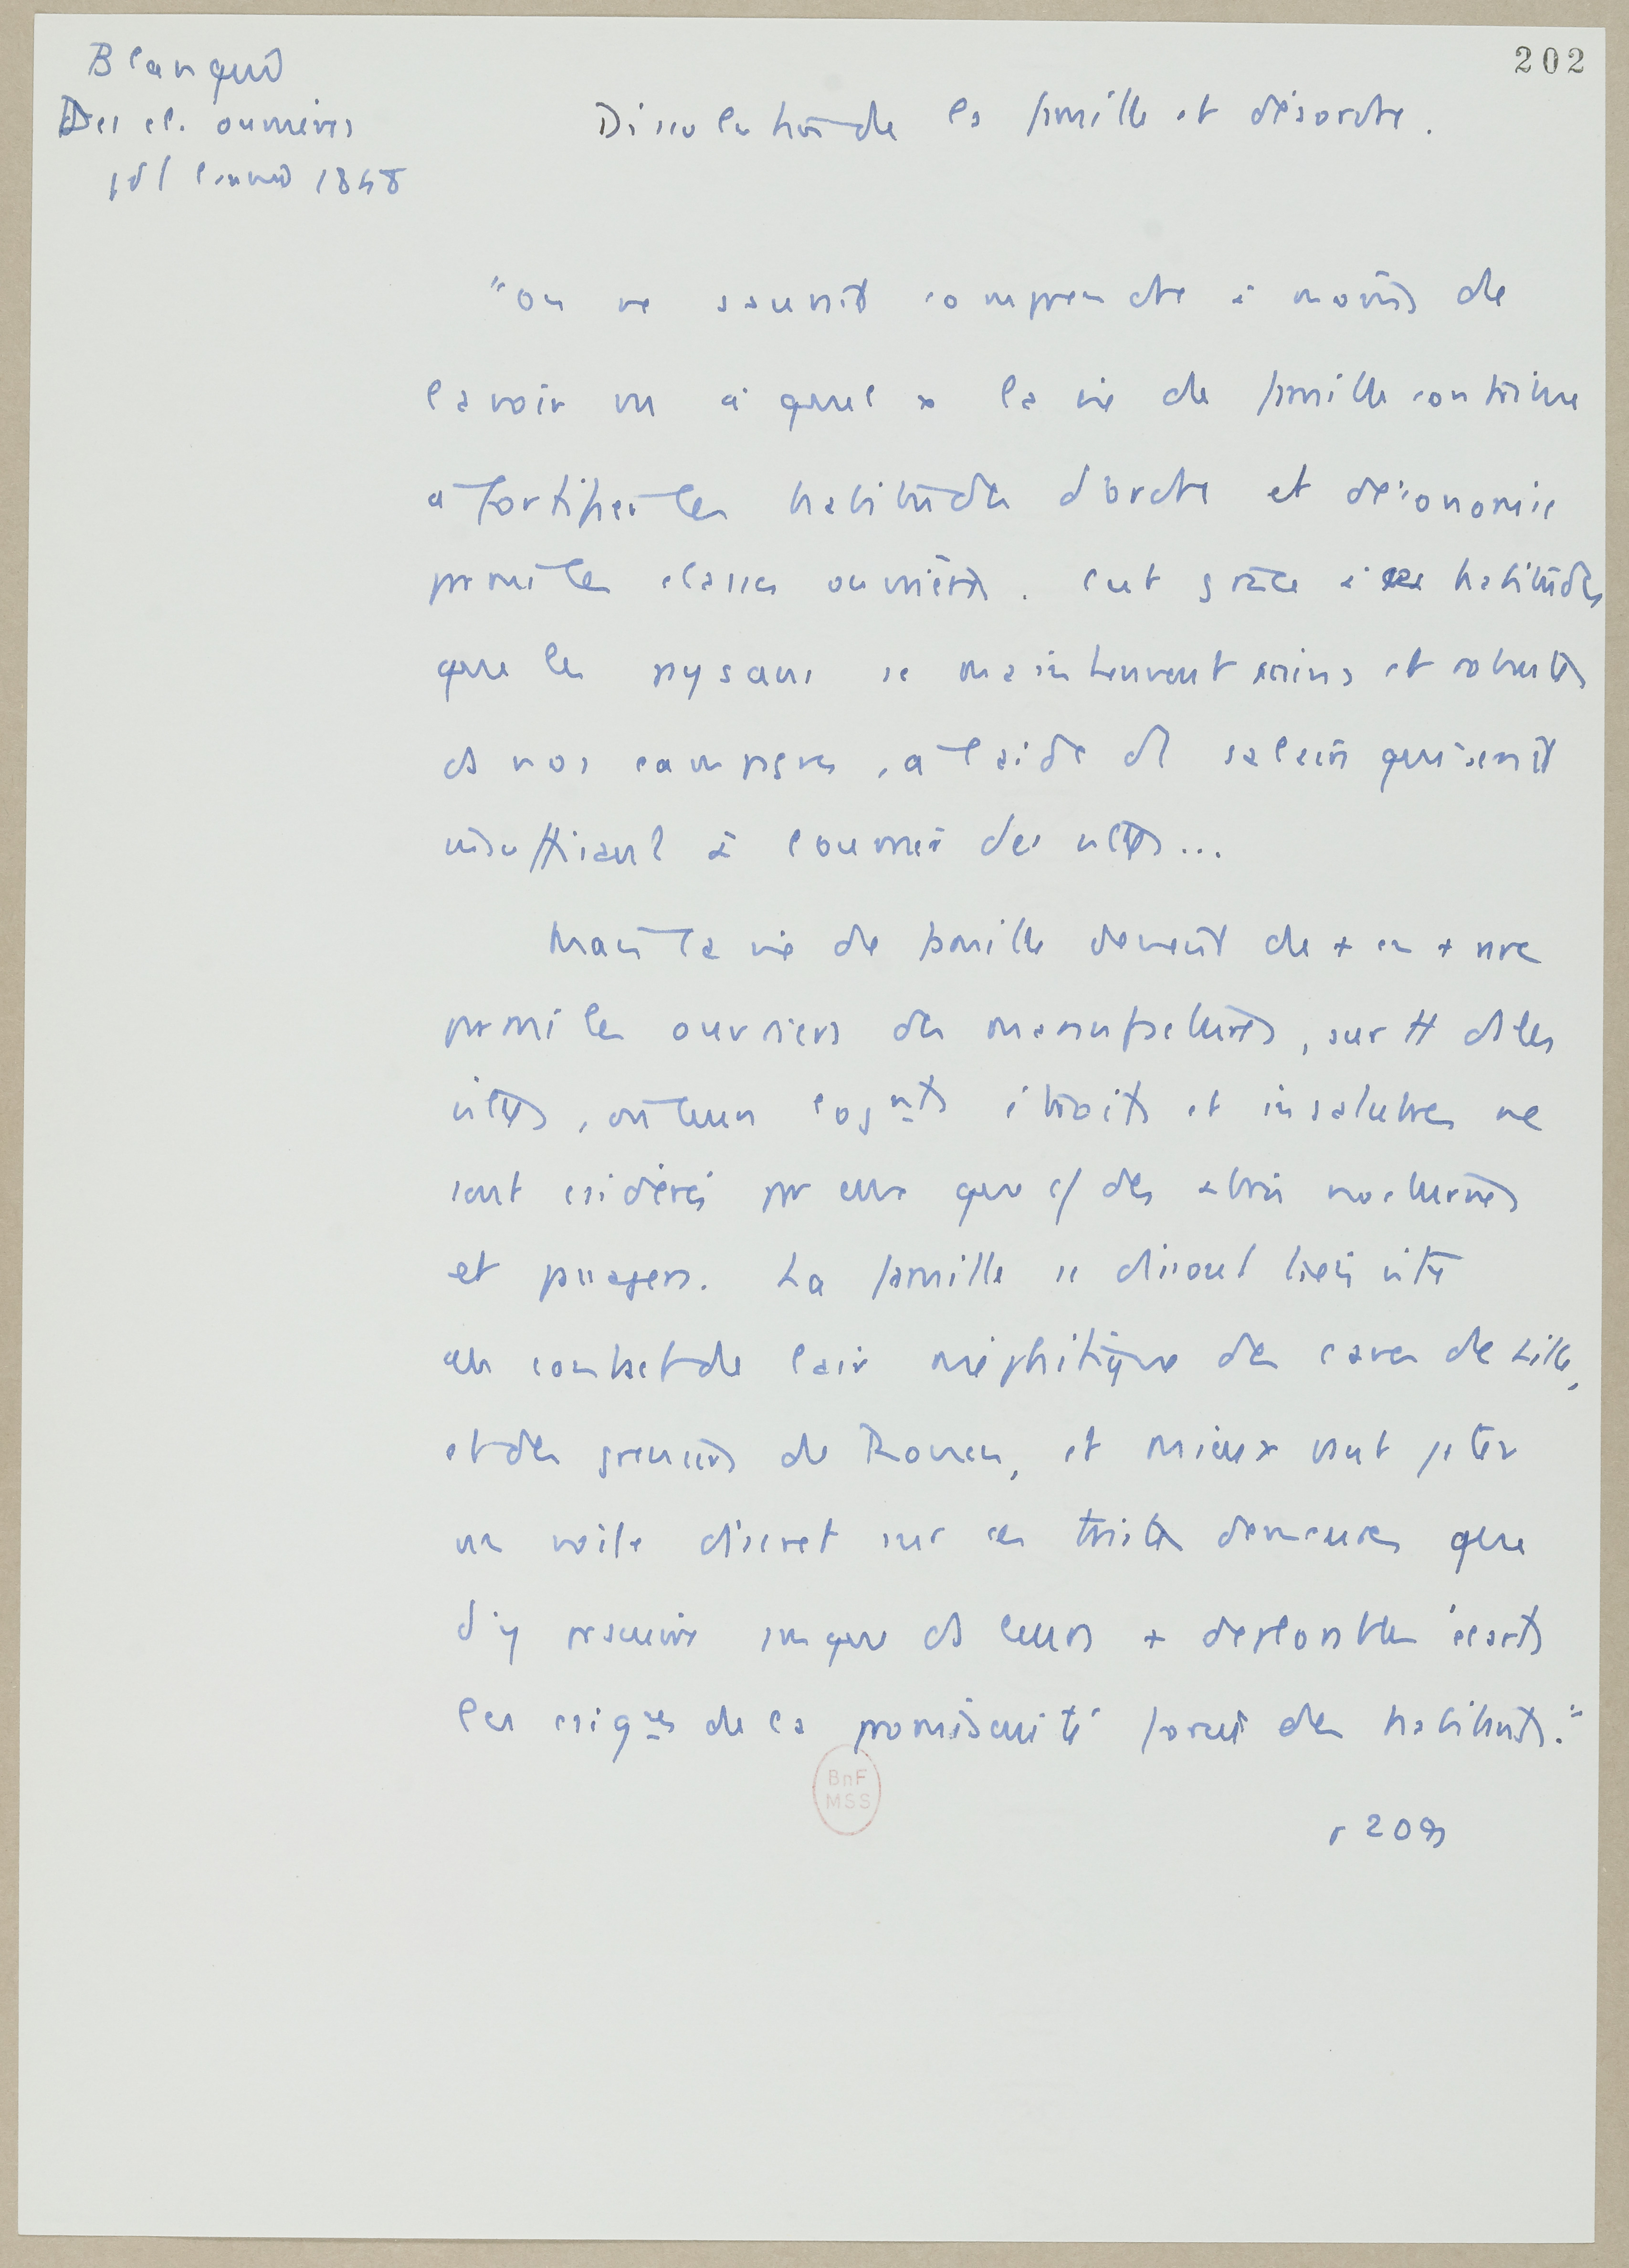 202
Blanqui
Des cl. ouvrières
pdt l'année 1848
Dissolution de la famille et désordre.
"On ne saurait comprendre à moins de
l'avoir vu à quel pt la vie de famille contribue
à fortifier les habitudes d'ordre et d'économie
parmi les classes ouvrières. C'est grâce à ces habitudes
que les paysans se maintiennent sains et robustes
ds nos campagnes, à l'aide de salaires qui seraient
insuffisants à l'ouvrier des villes...
Mais la vie de famille devient de + en + rare
parmi les ouvriers des manufactures, surtt ds les
villes, où leurs logmts étroits et insalubres ne
sont csidérés par eux que c/ des abris nocturnes
et passagers. La famille se dissout bien vite
au contact de l'air méphitique des caves de Lille,
et des greniers de Rouen, et mieux vaut jeter
un voile discret sur ces tristes demeures que
d'y poursuivre jusque ds leurs + déplorables écarts
les csiques de la promiscuité forcée des habitants."
p 209
BnF
MSS